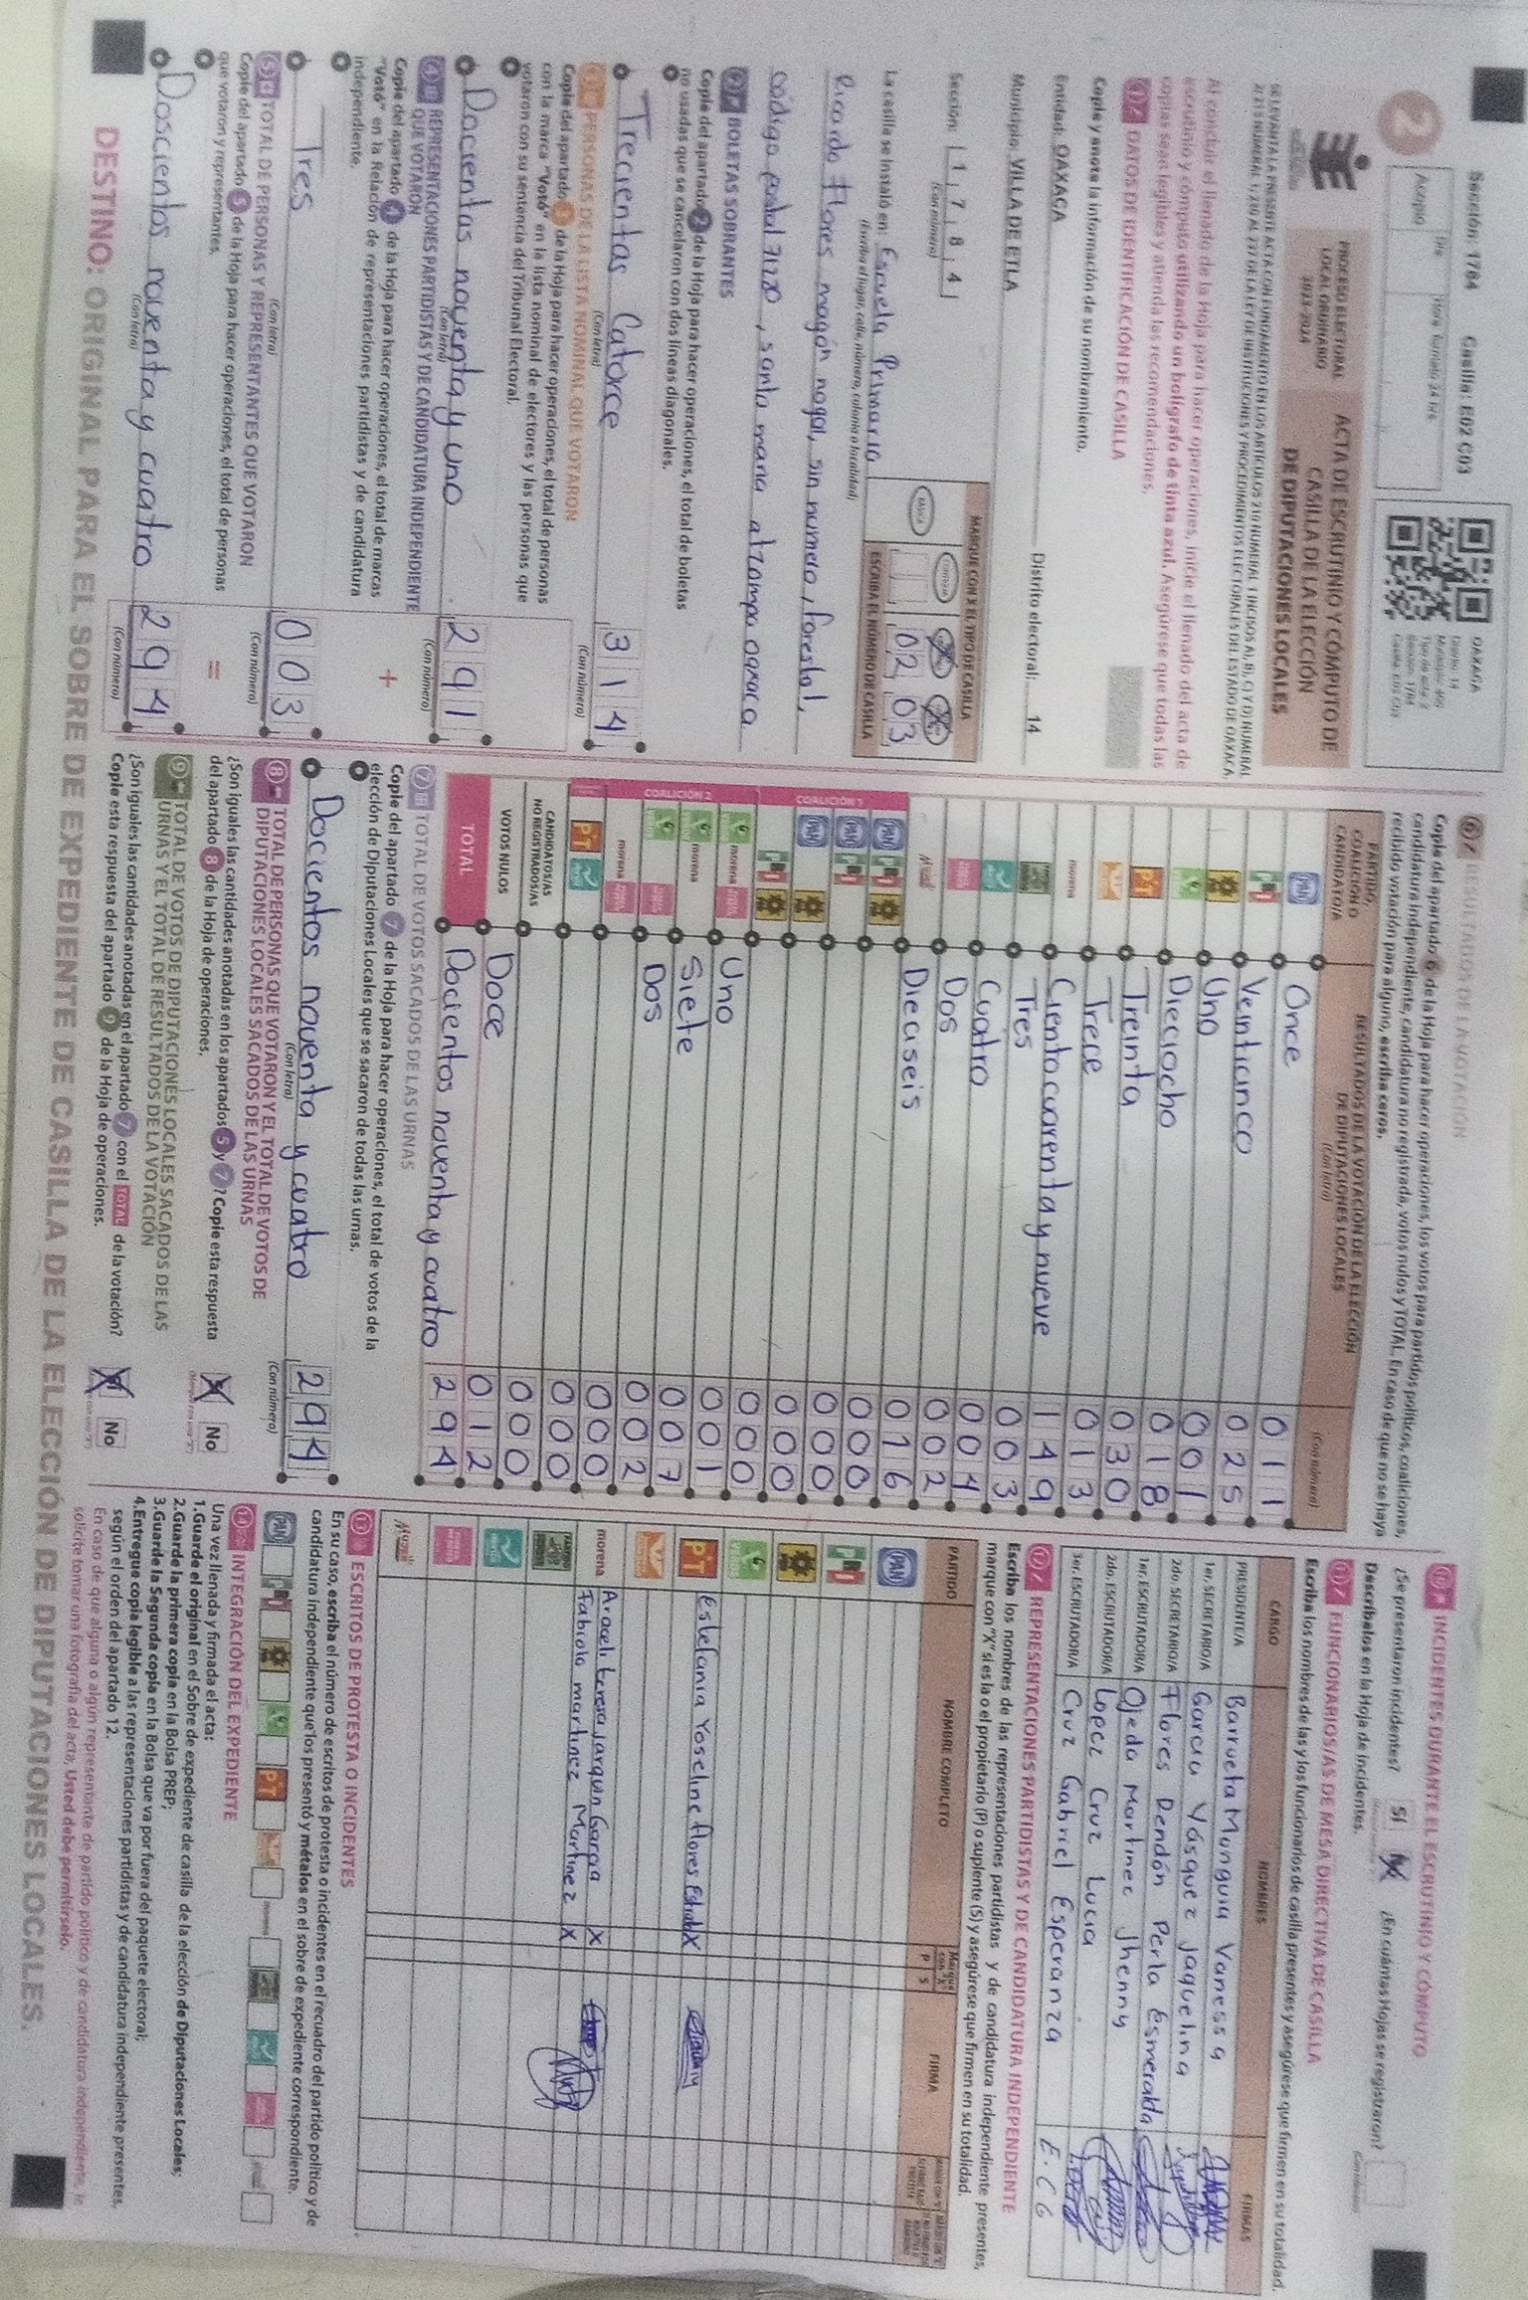 Sección: 1784 Casilla: E02 C03
OAXACA
2
Acopio
Día
Hora formato 24 hrs.
PROCESO ELECTORAL
LOCAL ORDINARIO
2023-2024
ACTA DE ESCRUTINIO Y CÓMPUTO DE
CASILLA DE LA ELECCIÓN
DE DIPUTACIONES LOCALES
Al concluir el llenado de la Hoja para hacer operaciones, inicie el llenado del acta de
escrutinio y cómputo utilizando un bolígrafo de tinta azul. Asegúrese que todas las
copias sean legibles y atienda las recomendaciones.
1 DATOS DE IDENTIFICACIÓN DE CASILLA
Copie y anote la información de su nombramiento.
Entidad: OAXACA
Municipio: VILLA DE ETLA Distrito electoral: 14
Sección: 1 7 8 4
(Con número)
MARQUE CON X EL TIPO DE CASILLA
BÁSICA
02 03
ESCRIBA EL NÚMERO DE CASILLA
La casilla se instaló en: Escuela Primaria
(Escriba el lugar, calle, número, colonia o localidad)
Ricardo Flores magón nogal, sin numero, forestal,
código postal 71220, santa maria atzompa oaxaca
2 BOLETAS SOBRANTES
Copie del apartado 2 de la Hoja para hacer operaciones, el total de boletas
no usadas que se cancelaron con dos líneas diagonales.
Trecientas Catorce 314
(Con letra) (Con número)
3 PERSONAS DE LA LISTA NOMINAL QUE VOTARON
Copie del apartado 3 de la Hoja para hacer operaciones, el total de personas
con la marca "Votó" en la lista nominal de electores y las personas que
votaron con su sentencia del Tribunal Electoral.
Docientas noventa y uno 291
(Con letra) (Con número)
4 REPRESENTACIONES PARTIDISTAS Y DE CANDIDATURA INDEPENDIENTE
QUE VOTARON
+
Copie del apartado 4 de la Hoja para hacer operaciones, el total de marcas
"Votó" en la Relación de representaciones partidistas y de candidatura
independiente.
Tres 003
(Con letra) (Con número)
5 TOTAL DE PERSONAS Y REPRESENTANTES QUE VOTARON
=
Copie del apartado 5 de la Hoja para hacer operaciones, el total de personas
que votaron y representantes.
Doscientos noventa y cuatro 294
(Con letra) (Con número)
6 RESULTADOS DE LA VOTACIÓN
Copie del apartado 6 de la Hoja para hacer operaciones, los votos para partidos políticos, coaliciones,
candidatura independiente, candidatura no registrada, votos nulos y TOTAL. En caso de que no se haya
recibido votación para alguno, escriba ceros.
PARTIDO,
COALICIÓN O
CANDIDATO/A
RESULTADOS DE LA VOTACIÓN DE LA ELECCIÓN
DE DIPUTACIONES LOCALES
(Con letra)
(Con número)
PAN Once 011
PRI Veinticinco 025
Uno 001
Dieciocho 018
PT Treinta 030
Trece 013
morena Ciento cuarenta y nueve 149
Tres 003
Cuatro 004
Dos 002
Dieciseis 016
COALICIÓN 1
PAN PRI 000
PAN PRI 000
PAN 000
PRI 000
COALICIÓN 2
morena Uno 001
morena Siete 007
Dos 002
morena 000
PT 000
CANDIDATOS/AS
NO REGISTRADOS/AS 000
VOTOS NULOS Doce 012
TOTAL Docientos noventa y cuatro 294
7 TOTAL DE VOTOS SACADOS DE LAS URNAS
Copie del apartado 7 de la Hoja para hacer operaciones, el total de votos de la
elección de Diputaciones Locales que se sacaron de todas las urnas.
Docientos noventa y cuatro 294
(Con letra) (Con número)
8 TOTAL DE PERSONAS QUE VOTARON Y EL TOTAL DE VOTOS DE
DIPUTACIONES LOCALES SACADOS DE LAS URNAS
¿Son iguales las cantidades anotadas en los apartados 5 y 7? Copie esta respuesta
del apartado 8 de la Hoja de operaciones.
No
9 TOTAL DE VOTOS DE DIPUTACIONES LOCALES SACADOS DE LAS
URNAS Y EL TOTAL DE RESULTADOS DE LA VOTACIÓN
¿Son iguales las cantidades anotadas en el apartado 7 con el TOTAL de la votación?
Copie esta respuesta del apartado 9 de la Hoja de operaciones.
No
10 INCIDENTES DURANTE EL ESCRUTINIO Y CÓMPUTO
¿Se presentaron incidentes? Sí ¿En cuántas Hojas se registraron?
Descríbalos en la Hoja de incidentes.
11 FUNCIONARIOS/AS DE MESA DIRECTIVA DE CASILLA
Escriba los nombres de las y los funcionarios de casilla presentes y asegúrese que firmen en su totalidad.
CARGO NOMBRES FIRMAS
PRESIDENTE/A Barrueta Munguia Vanessa
1er. SECRETARIO/A Garcia Vásquez Jaquelina
2do. SECRETARIO/A Flores Rendón Perla Esmeralda
1er. ESCRUTADOR/A Ojeda Martinez Jhenny
2do. ESCRUTADOR/A Lopez Cruz Lucia
3er. ESCRUTADOR/A Cruz Gabriel Esperanza E.C G
12 REPRESENTACIONES PARTIDISTAS Y DE CANDIDATURA INDEPENDIENTE
Escriba los nombres de las representaciones partidistas y de candidatura independiente presentes,
marque con "X" si es la o el propietario (P) o suplente (S) y asegúrese que firmen en su totalidad.
PARTIDO NOMBRE COMPLETO P S FIRMA
PAN
PRI
PT Estefania Yoseline flores Estrada X
morena Araceli teresa Jarquin Garcia X
Fabiola martinez Martinez X
13 ESCRITOS DE PROTESTA O INCIDENTES
En su caso, escriba el número de escritos de protesta o incidentes en el recuadro del partido político y de
candidatura independiente que los presentó y métalos en el sobre de expediente correspondiente.
PAN PRI PT morena
14 INTEGRACIÓN DEL EXPEDIENTE
Una vez llenada y firmada el acta:
1.Guarde el original en el Sobre de expediente de casilla de la elección de Diputaciones Locales;
2.Guarde la primera copia en la Bolsa PREP;
3.Guarde la Segunda copia en la Bolsa que va por fuera del paquete electoral;
4.Entregue copia legible a las representaciones partidistas y de candidatura independiente presentes,
según el orden del apartado 12.
En caso de que alguna o algún representante de partido político y de candidatura independiente, le
solicite tomar una fotografía del acta, Usted debe permitírselo.
DESTINO: ORIGINAL PARA EL SOBRE DE EXPEDIENTE DE CASILLA DE LA ELECCIÓN DE DIPUTACIONES LOCALES.